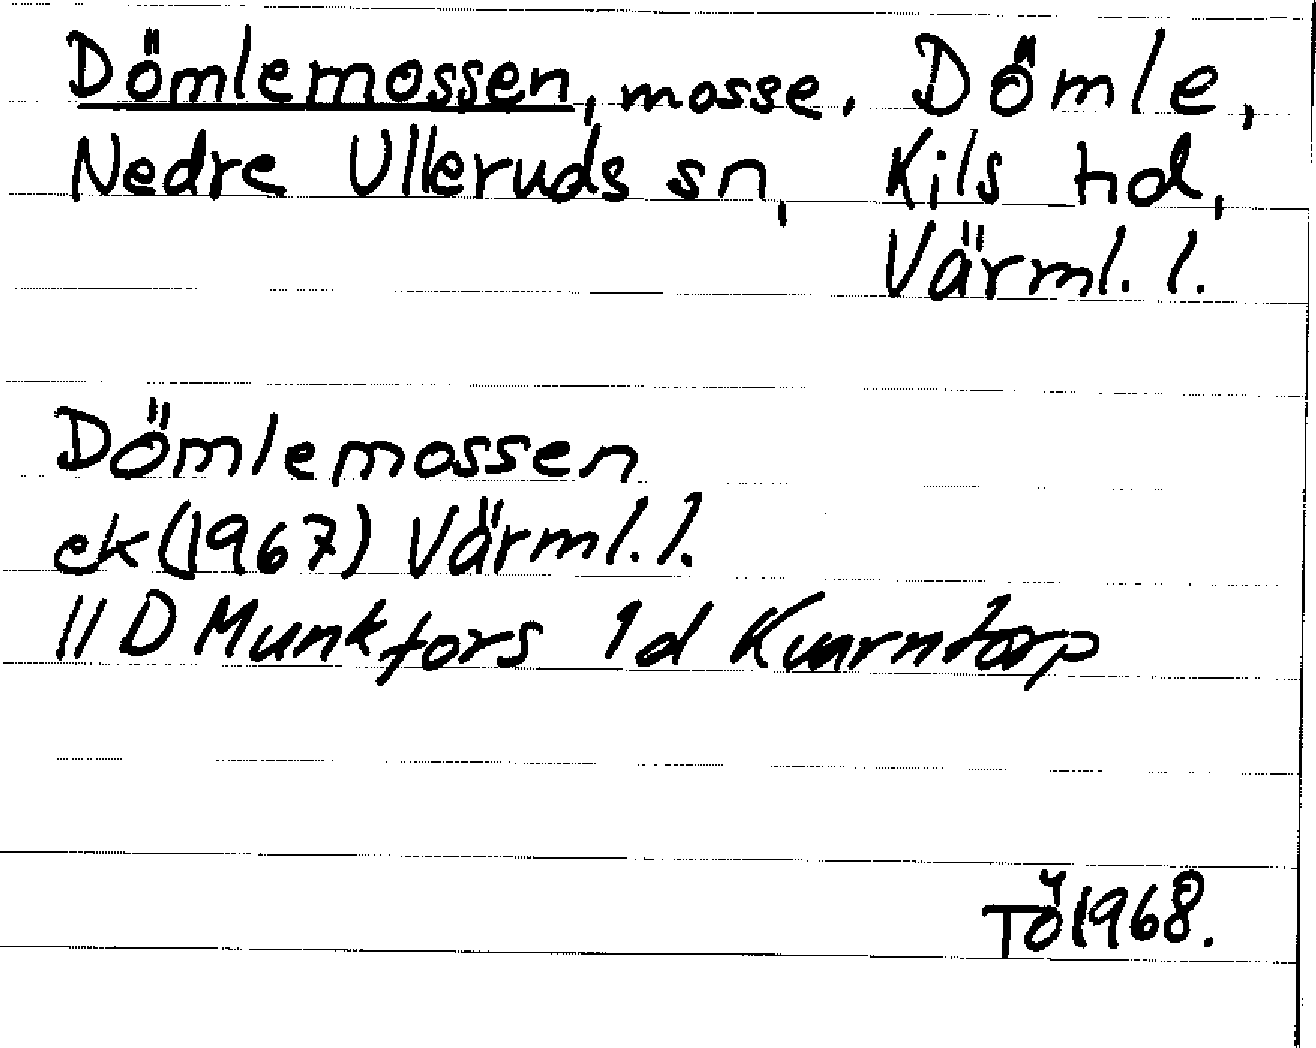 Dömlemossen, mosse. Dömle,
Nedre Ulleruds sn, Kils hd,
Värml. l.
Dömlemossen
ek (1967) Värml. l.
11 D Munkfors 1d Kvarntorp
TÖ 1968.